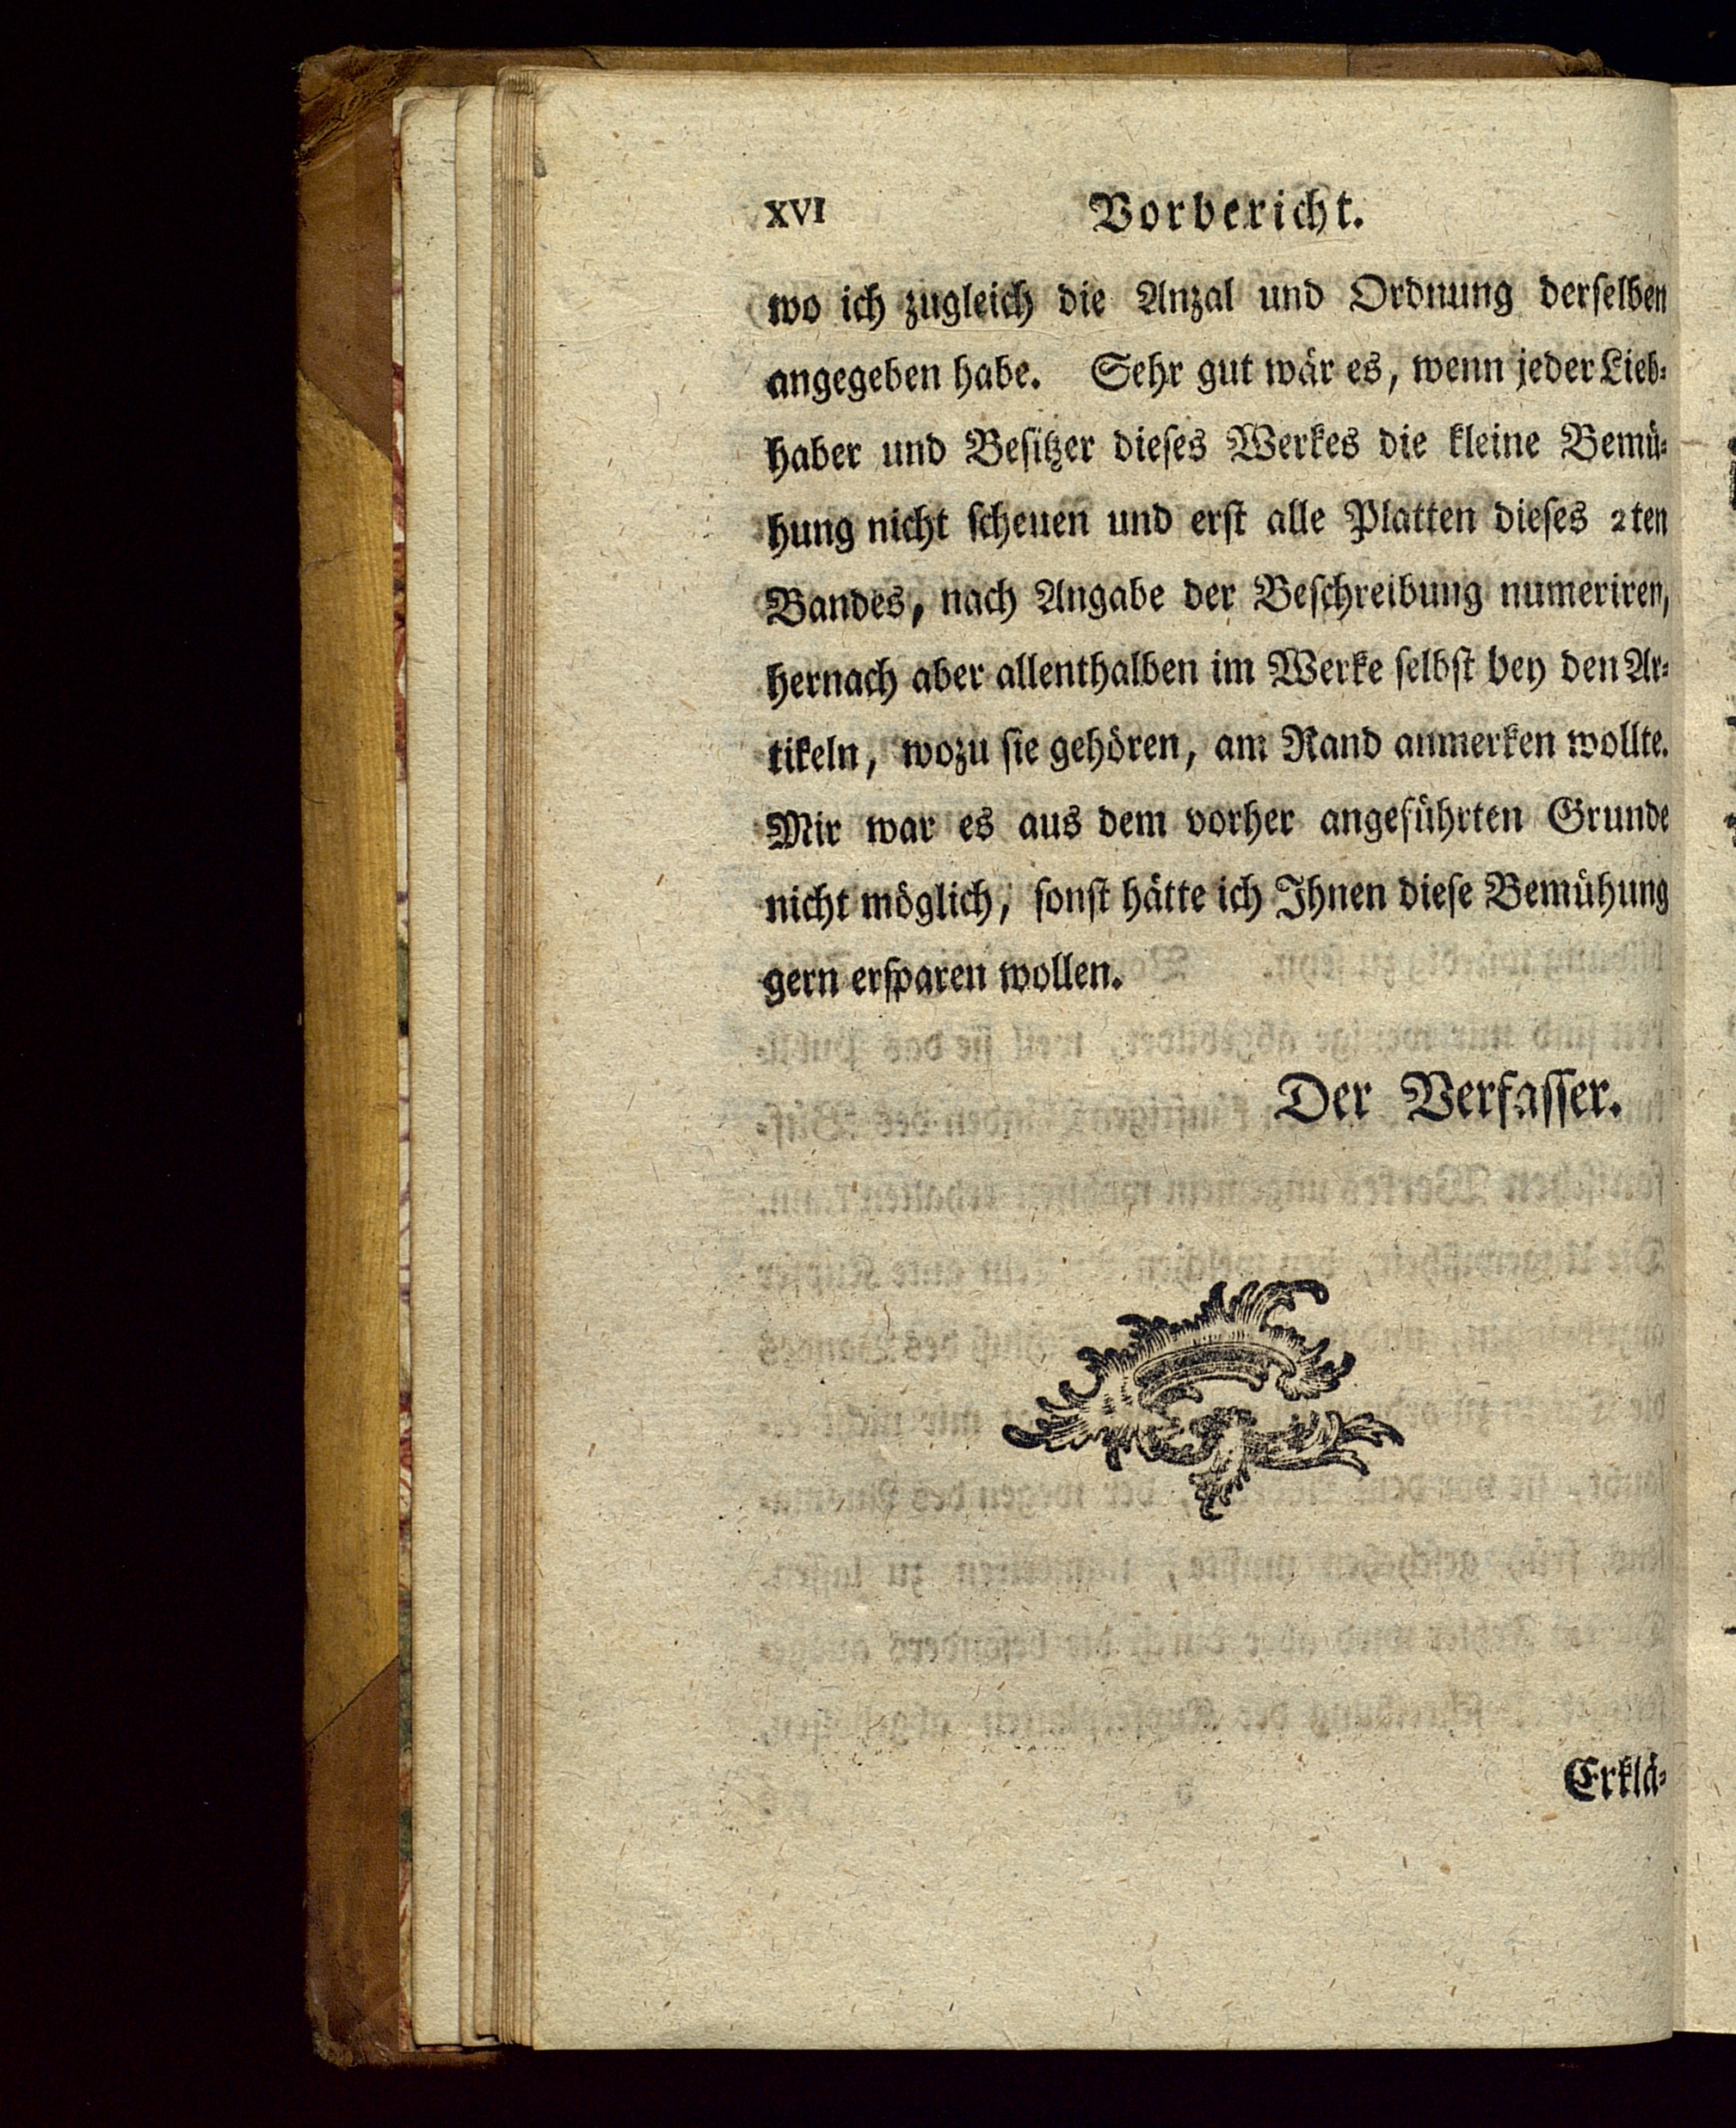 XVI Vorbericht.
wo ich zugleich die Anzal und Ordnung derſelben
angegeben habe. Sehr gut wär es, wenn jeder Lieb-
haber und Beſitzer dieſes Werkes die kleine Bemü-
hung nicht ſcheuen und erſt alle Platten dieſes 2ten
Bandes, nach Angabe der Beſchreibung numeriren,
hernach aber allenthalben im Werke ſelbſt bey den Ar-
tikeln, wozu ſie gehören, am Rand anmerken wollte.
Mir war es aus dem vorher angeführten Grunde
nicht möglich, ſonſt hätte ich Ihnen dieſe Bemühung
gern erſparen wollen.
Der Verfaſſer.
Erklä-